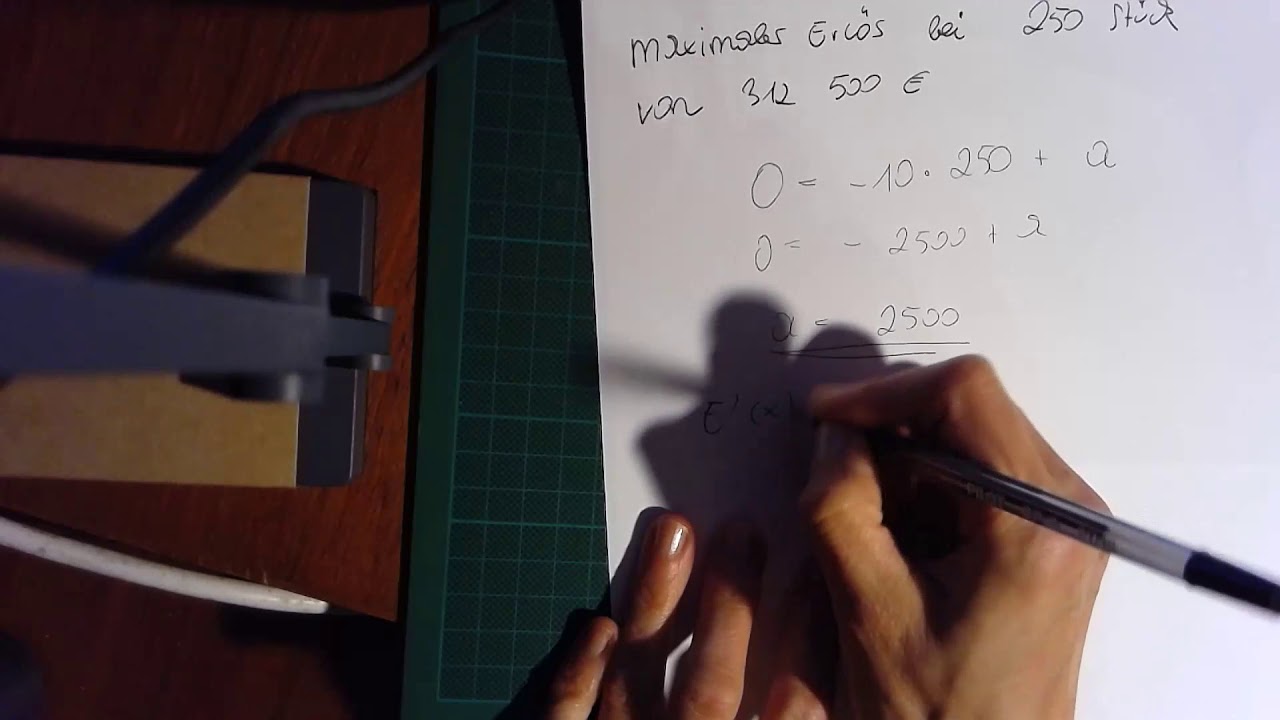 Maximaler Erlös bei 250 Stück
von 312 500 €
0 = -10 · 250 + a
0 = - 2500 + a
a = 2500
E'(x)